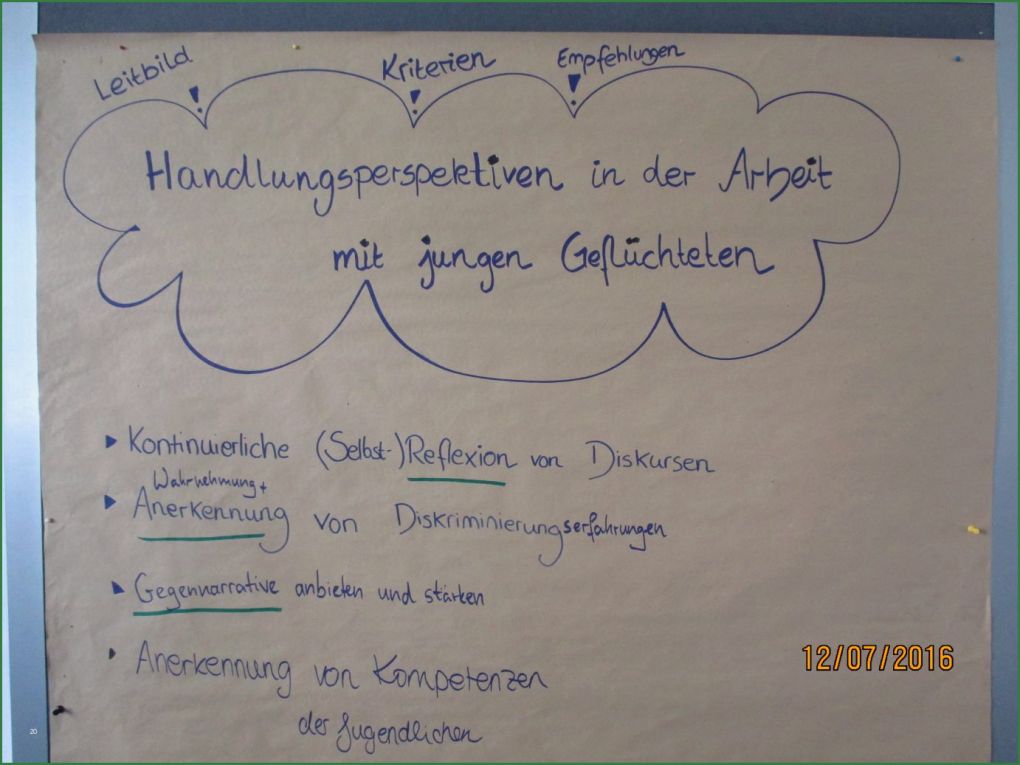 Leitbild Kriterien Empfehlungen
Handlungsperspektiven in der Arbeit
mit jungen Geflüchteten
Kontinuierliche (Selbst-)Reflexion von Diskursen
Wahrnehmung +
Anerkennung von Diskriminierungserfahrungen
Gegennarrative anbieten und stärken
Anerkennung von Kompetenzen
der Jugendlichen
12/07/2016
20